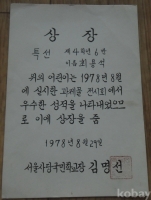 상장
특선
제4학년 6반
이름 최문석
위의 어린이는 1978년 8월
에 실시한 전시회에서
우수한 성적을 나타내었으므
로 이에 상장을 줌
1978년 8월 29일
서울사당국민학교장 김명선
kobay